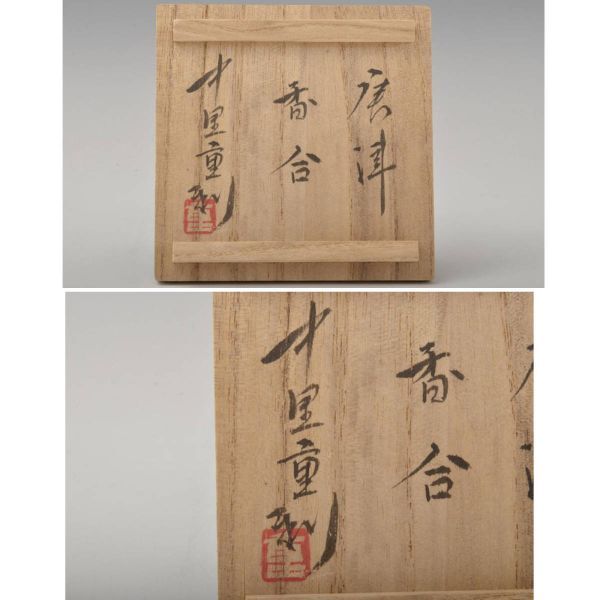 唐津
香合
中里重利
香合
中里重利